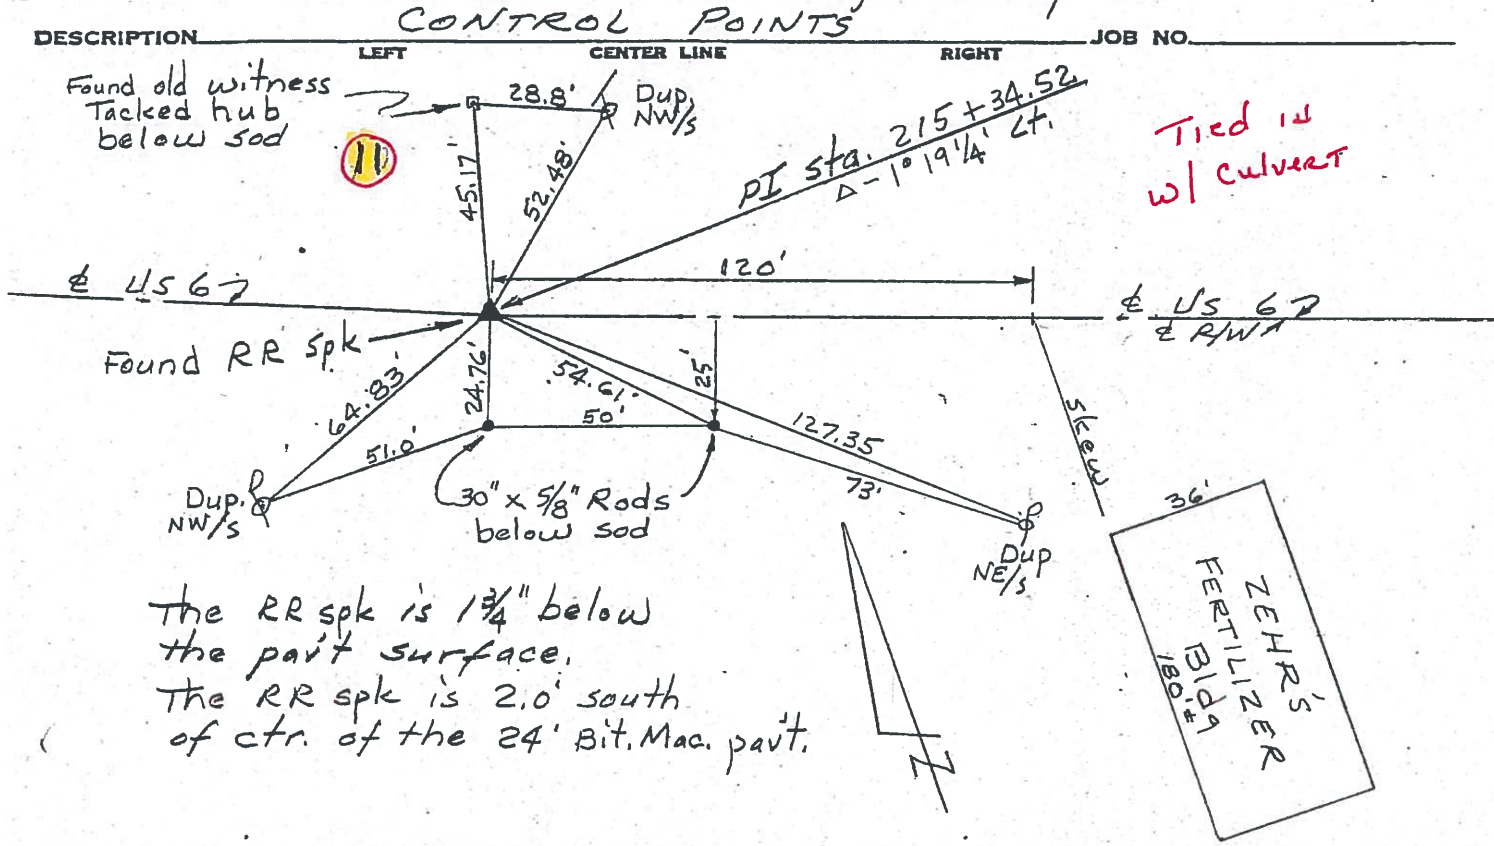 CONTROL POINTS
DESCRIPTION
JOB NO.
LEFT
CENTER LINE
RIGHT
Found old witness
Tacked hub
below sod
11
28.8'
Dup.
NW/s
45.17'
52.48'
PI sta. 215+34.52
Δ - 1° 19 1/4' Lt.
Tied in
w/ Culvert
120'
℄ US 6
℄ US 6
℄ R/W
Found RR spk
64.83'
24.76'
54.61'
25'
50'
51.0'
127.35
73'
Skew
Dup.
NW/s
30" x 5/8" Rods
below sod
Dup
NE/s
36'
ZEHR'S
FERTILIZER
Bldg
180'±
The RR spk is 1 3/4" below
the pav't surface.
The RR spk is 2.0' south
of ctr. of the 24' Bit. Mac. pav't.
N